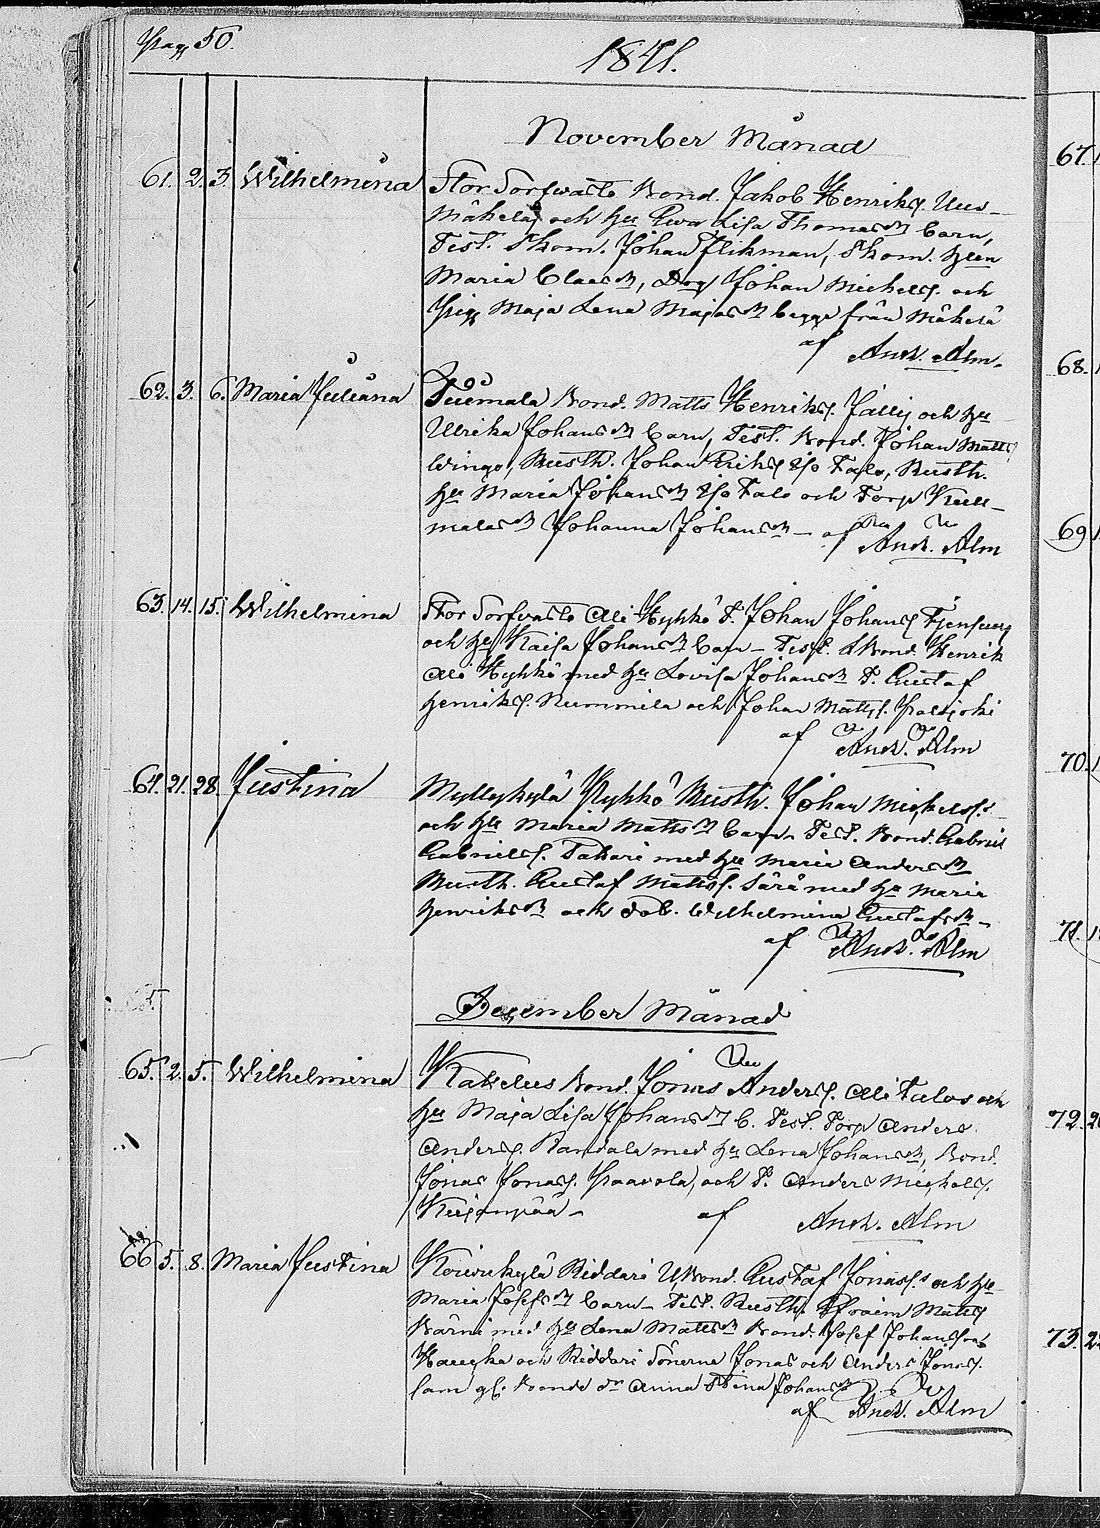 Pag. 50.
1841.
November Månad
61. 2. 3. Wilhelmina Stor Torfwasto Bond. Jakob Henriks. Uus-
Mäkelä och hu Ewa Lisa Thomasdr barn,
Test. Skom. Johan Flikman, Skom. hun
Maria Claesdr, Dog Johan Mickels. och
Pig Maja Lena Majasdr begge från Mäkelä
af And. Alm.
62. 3. 6. Maria Juliana Tuumala Bond. Matts Henriks. Jally och hu
Ulrika Johansdr barn, Test. Bond. Johan Matts
Wingo, Rusth. Johan Eriks Ijo Talo, Rusth.
hu Maria Johansdr Ijo Talo och Torp
Johanna Johansdr - af And. Alm
63. 14. 15. Wilhelmina Stor Torfwasto Ali Hykkö T. Johan Johans
och hu Kaisa Johansdr barn - Test. Bond. Henrik
Ali Hykkö med hu Lovisa Johansdr T. Gustaf
Henriks. Nummila och Johan Matts. Paltjoki
af And. Alm
64. 21. 28. Justina Myllykylä Pykkö Rusth. Johan Mickels.
och hu Maria Mattsdr barn - Test. Bond. Gabriel
Gabriels. Takari med hu Maria Andersdr
Rusth. Gustaf Matts. Särä med hu Maria
Henriksdr och dot. Wilhelmina Gustafsdr -
af And. Alm
December Månad
65. 2. 5. Wilhelmina Bond. Jonas Anders. Ali Talos och
hu Maja Lisa Johansdr b. Test. Torp Anders
Anders. Randala med hu Lena Johansdr, Bond.
Jonas Jonas. Paavola, och T. Anders Mickels.
Kujanpää - af And. Alm
66 5. 8. Maria Justina Koiwukylä Riddari UBond. Gustaf Jonas. och hu
Maria Josefsdr barn - Test. Rusth. Efraim Matts
Bärni med hu Lena Mattsdr Bond. Josef Johansson
Haugka och Riddari Sönerna Jonas och Anders Jonas.
sam gl. Bonde dr Anna Stina Johansdr
af And. Alm
67.
68.
69
70.
71.
72.
73.